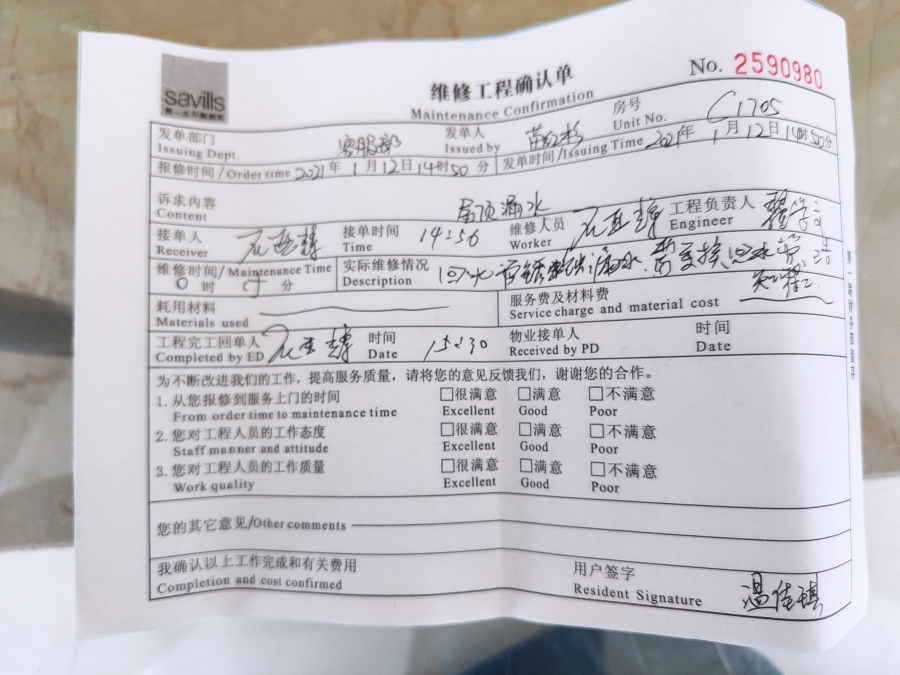 savills
维修工程确认单
Maintenance Confirmation
No. 2590980
发单部门 客服部 发单人 房号 C1705
Issuing Dept. Issued by Unit No.
报修时间/Order time 2021年1月12日14时50分 发单时间/Issuing Time 2021年1月12日14时50分
诉求内容 屋顶漏水
Content
接单人 接单时间 14:56 维修人员 工程负责人
Receiver Time Worker Engineer
维修时间/Maintenance Time 实际维修情况
0时 分 Description
耗用材料 服务费及材料费
Materials used Service charge and material cost
工程完工回单人 时间 15:30 物业接单人 时间
Completed by ED Date Received by PD Date
为不断改进我们的工作，提高服务质量，请将您的意见反馈我们，谢谢您的合作。
1. 从您报修到服务上门的时间 □很满意 □满意 □不满意
From order time to maintenance time Excellent Good Poor
2. 您对工程人员的工作态度 □很满意 □满意 □不满意
Staff manner and attitude Excellent Good Poor
3. 您对工程人员的工作质量 □很满意 □满意 □不满意
Work quality Excellent Good Poor
您的其它意见/Other comments
我确认以上工作完成和有关费用 用户签字 温佳琪
Completion and cost confirmed Resident Signature